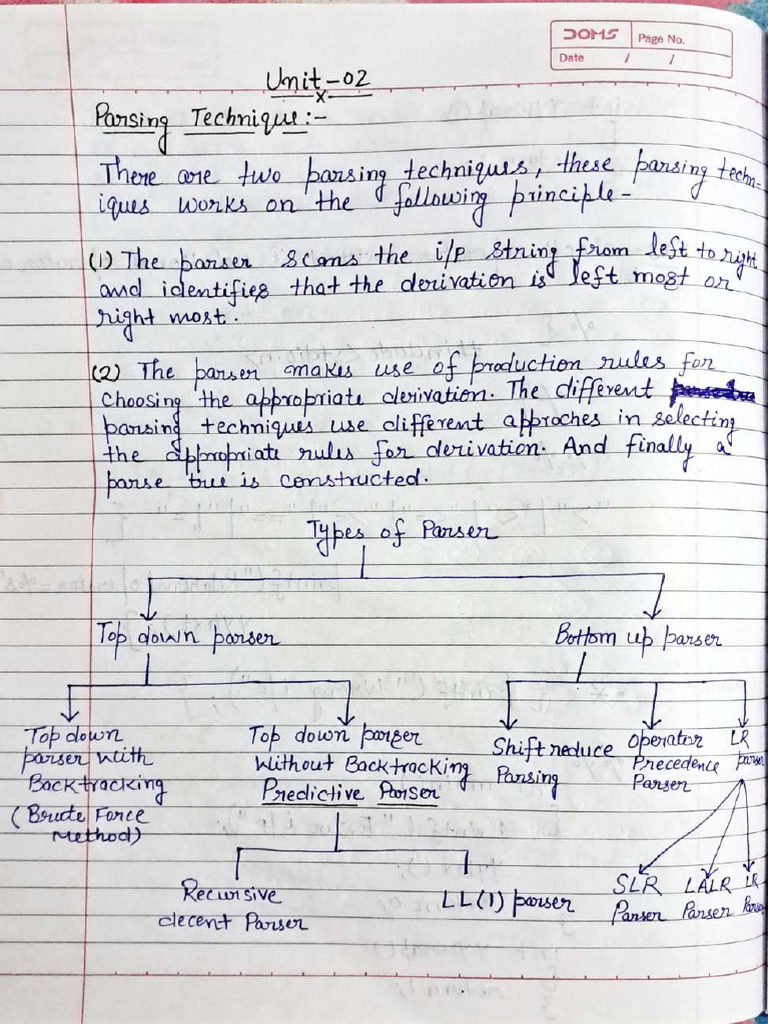 DOMS
Page No.
Date / /
Unit-02
x
Parsing Technique:-
There are two parsing techniques, these parsing techn-
iques works on the following principle-
(1) The parser scans the i/p string from left to right
and identifies that the derivation is left most or
right most.
(2) The parser makes use of production rules for
choosing the appropriate derivation. The different
parsing techniques use different approches in selecting
the appropriate rules for derivation. And finally a
parse tree is constructed.
Types of Parser
Top down parser
Bottom up parser
Top down
parser with
Backtracking
(Brute Force
Method)
Top down parser
Without Backtracking
Predictive Parser
Shift reduce
Parsing
Operator
Precedence
Parser
LR
parser
Recursive
decent Parser
LL(1) parser
SLR
Parser
LALR
Parser
LR